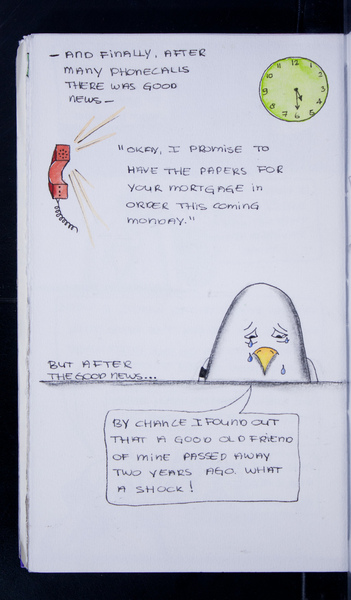 - AND FINALLY, AFTER
MANY PHONECALLS
THERE WAS GOOD
NEWS -
12
1
2
3
4
5
6
7
8
9
10
11
"OKAY, I PROMISE TO
HAVE THE PAPERS FOR
YOUR MORTGAGE IN
ORDER THIS COMING
MONDAY."
BUT AFTER
THE GOOD NEWS...
BY CHANCE I FOUND OUT
THAT A GOOD OLD FRIEND
OF MINE PASSED AWAY
TWO YEARS AGO. WHAT
A SHOCK!